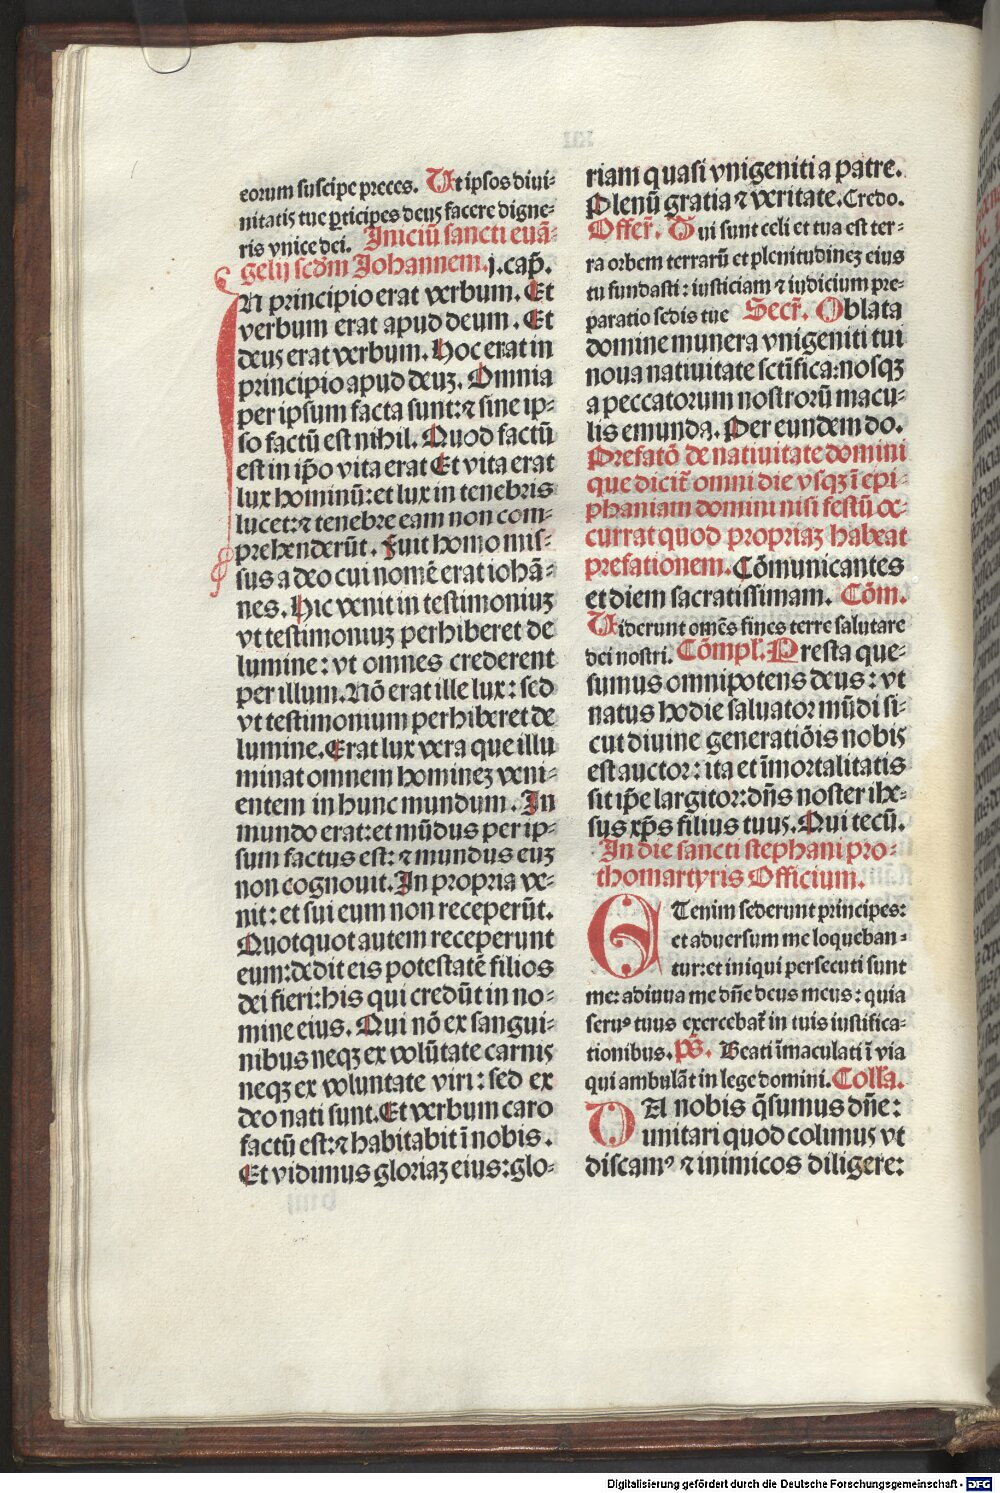 eorum suscipe preces. Ut ipsos diui⸗
nitatis tue ꝑticipes deus facere digne⸗
ris vnice dei. Iniciū sancti euā⸗
gelij scđm Johannem. j. cap̄.
IN principio erat verbum. Et
verbum erat apud deum. Et
deus erat verbum. Hoc erat in
principio apud deuꝫ. Omnia
per ipsum facta sunt: ⁊ sine ip⸗
so factū est nihil. Quod factū
est in ip̄o vita erat Et vita erat
lux hominū: et lux in tenebris
lucet: ⁊ tenebre eam non com⸗
prehenderūt. Fuit homo mis⸗
sus a deo cui nomē erat iohā⸗
nes. Hic venit in testimoniuꝫ
vt testimoniuꝫ perhiberet de
lumine: vt omnes crederent
per illum. Nō erat ille lux: sed
vt testimonium perhiberet de
lumine. Erat lux vera que illu
minat omnem homineꝫ veni⸗
entem in hunc mundum. In
mundo erat: et mūdus per ip⸗
sum factus est: ⁊ mundus euꝫ
non cognouit. In propria ve⸗
nit: et sui eum non receperūt.
Quotquot autem receperunt
eum: dedit eis potestatē filios
dei fieri: his qui credūt in no⸗
mine eius. Qui nō ex sangui⸗
nibus neqꝫ ex volūtate carnis
neqꝫ ex voluntate viri: sed ex
deo nati sunt. Et verbum caro
factū est: ⁊ habitabit ī nobis.
Et vidimus gloriaꝫ eius: glo⸗
riam quasi vnigeniti a patre.
Plenū gratia ⁊ veritate. Credo.
Offer̄. Tui sunt celi et tua est ter⸗
ra orbem terrarū et plenitudineꝫ eius
tu fundasti: iusticiam ⁊ iudicium pre⸗
paratio sedis tue Secr̄. Oblata
domine munera vnigeniti tui
noua natiuitate sctīfica: nosqꝫ
a peccatorum nostrorū macu⸗
lis emunda. Per eundem do.
Prefatō de natiuitate domini
que dicit̄ omni die vsqꝫ ī epi⸗
phaniam domini nisi festū oc⸗
currat quod propriaꝫ habeat
prefationem. Cōmunicantes
et diem sacratissimam. Cōm.
Viderunt omēs fines terre salutare
dei nostri. Cōmpl̄. Presta que⸗
sumus omnipotens deus: vt
natus hodie saluator mūdi si⸗
cut diuine generatiōis nobis
est auctor: ita et īmortalitatis
sit ip̄e largitor: dn̄s noster ihe⸗
sus xp̄s filius tuus. Qui tecū.
In die sancti stephani pro⸗
thomartyris Officium.
ETenim sederunt principes:
et aduersum me loqueban⸗
tur: et iniqui persecuti sunt
me: adiuua me dn̄e deus meus: quia
seruꝰ tuus exercebat̄ in tuis iustifica⸗
tionibus. p̄s. Beati īmaculati ī via
qui ambulāt in lege domini. Coll̄a.
DA nobis q̄sumus dn̄e:
imitari quod colimus vt
discamꝰ ⁊ inimicos diligere:
Digitalisierung gefördert durch die Deutsche Forschungsgemeinschaft - DFG